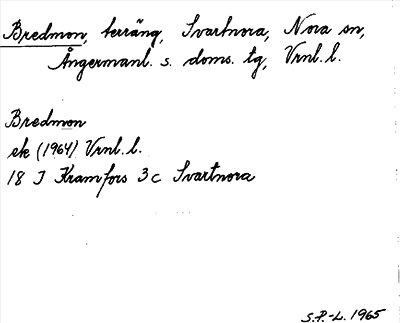 Bredmon, terräng, Svartnora, Nora sn,
Ångermanl. s. doms. tg, Vrnl. l.
Bredmon
ek (1964) Vrnl. l.
18 J Kramfors 3c Svartnora
S.P.-L. 1965